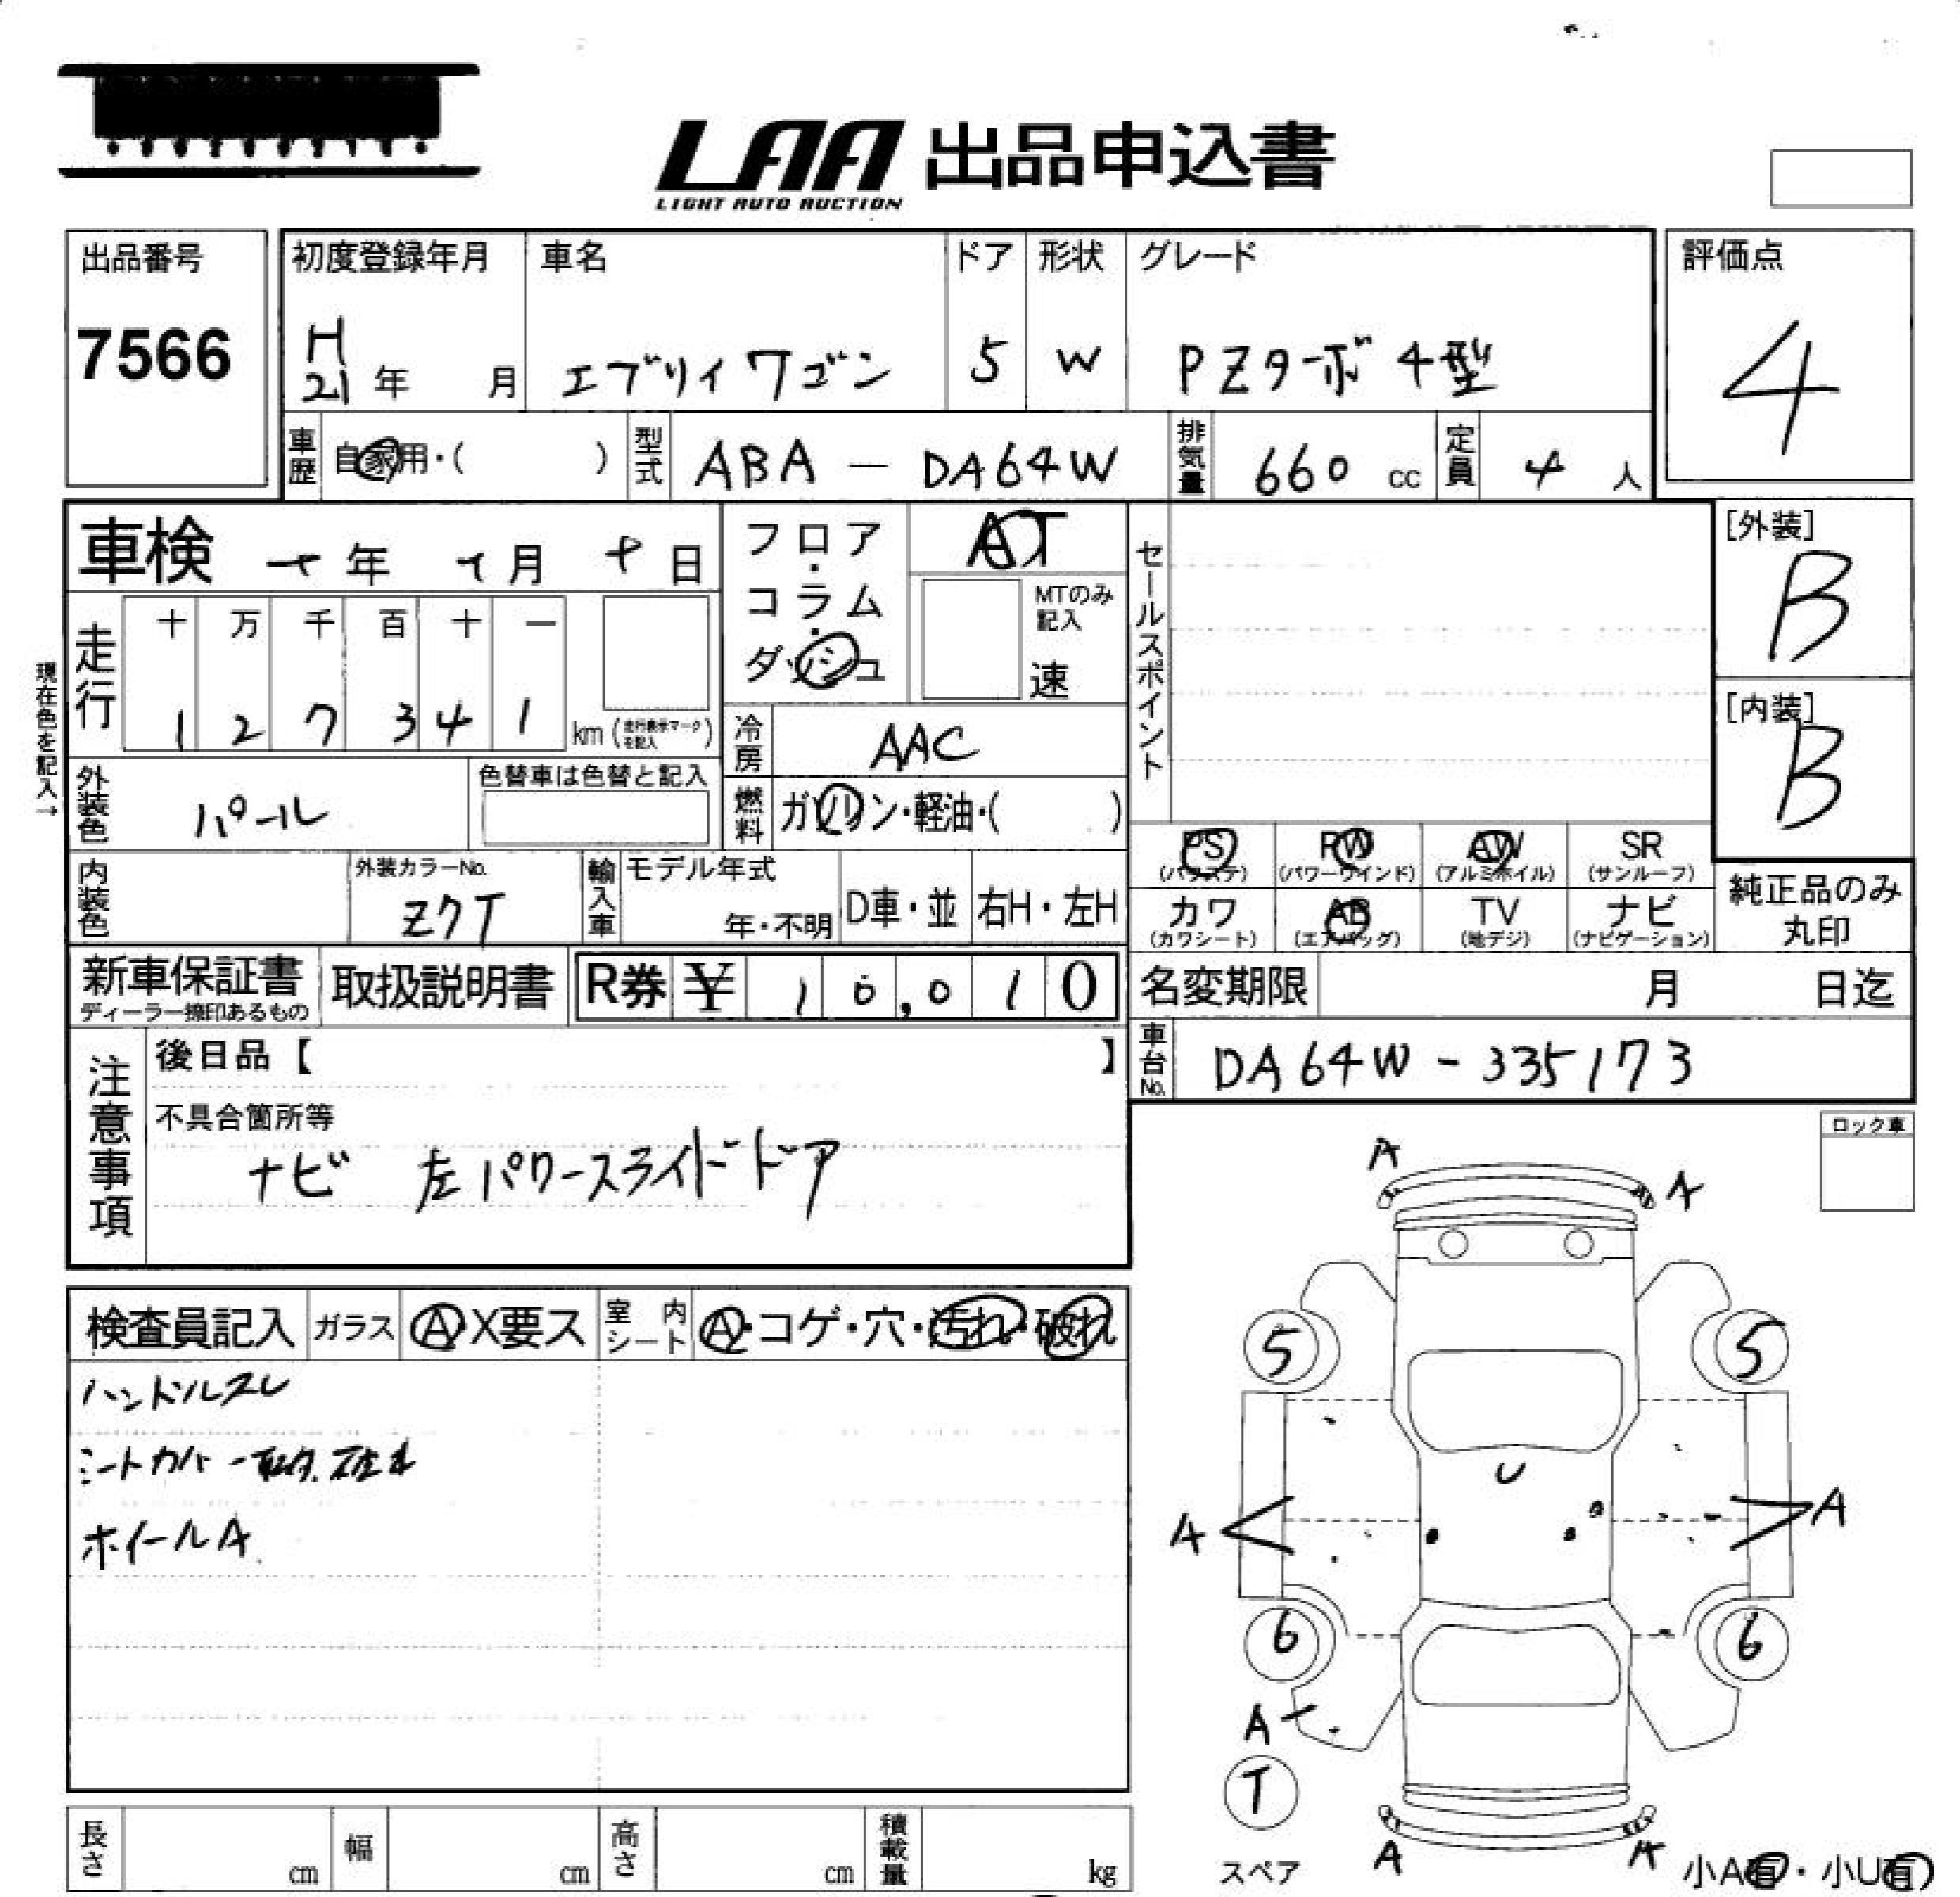 LAA 出品申込書
LIGHT AUTO AUCTION
出品番号
7566
初度登録年月 車名 ドア 形状 グレード
H
21 年 月 エブリィワゴン 5 W PZターボ 4型
評価点
4
車歴 自家用・( ) 型式 ABA - DA64W 排気量 660 cc 定員 4 人
車検 年 月 日
フロア・コラム・ダッシュ
AT
MTのみ記入
速
セールスポイント
[外装]
B
[内装]
B
現在色を記入→
走行 十 万 千 百 十 一
1 2 7 3 4 1 km (走行表示マークを記入)
冷房 AAC
外装色 パール 色替車は色替と記入
燃料 ガソリン・軽油・( )
PS (パワステ) PW (パワーウインド) AW (アルミホイル) SR (サンルーフ)
カワ (カワシート) AB (エアバッグ) TV (地デジ) ナビ (ナビゲーション)
純正品のみ
丸印
内装色 外装カラーNo. Z7T 輸入車 モデル年式 年・不明 D車・並 右H・左H
新車保証書 ディーラー捺印あるもの 取扱説明書 R券 ¥ 10,010
名変期限 月 日迄
車台No. DA64W-335173
注意事項
後日品【 】
不具合箇所等
ナビ 左パワースライドドア
ロック車
検査員記入 ガラス A・X要ス 室内シート A・コゲ・穴・汚れ・破れ
ハンドルスレ
シートカバー
ホイールA
A A
5 5
U
A A
6 6
A
T
スペア
A A
小A有・小U有
長さ cm 幅 cm 高さ cm 積載量 kg